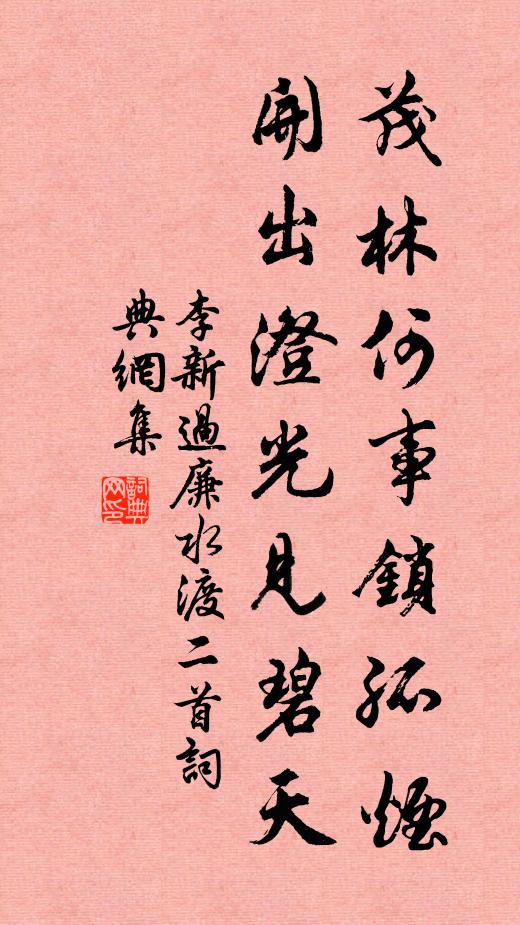 茂林何事鎖孤煙
開出澄光見碧天
李新過廉水渡二首詞
典網集
詞典网印